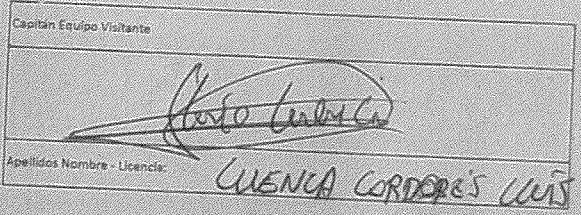 Capitán Equipo Visitante
Cuenca
Apellidos Nombre - Licencia:
CUENCA CORDOBÉS LUIS